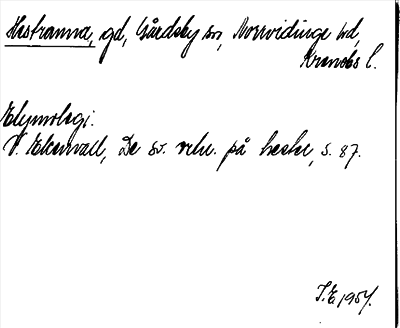 Hestranna, gd, Gårdsby sn, Norrvidinge hd,
Kronobs l.
Etymologi:
V. Ekenvall, De sv. relu. på hester, s. 87.
I.E 1954.